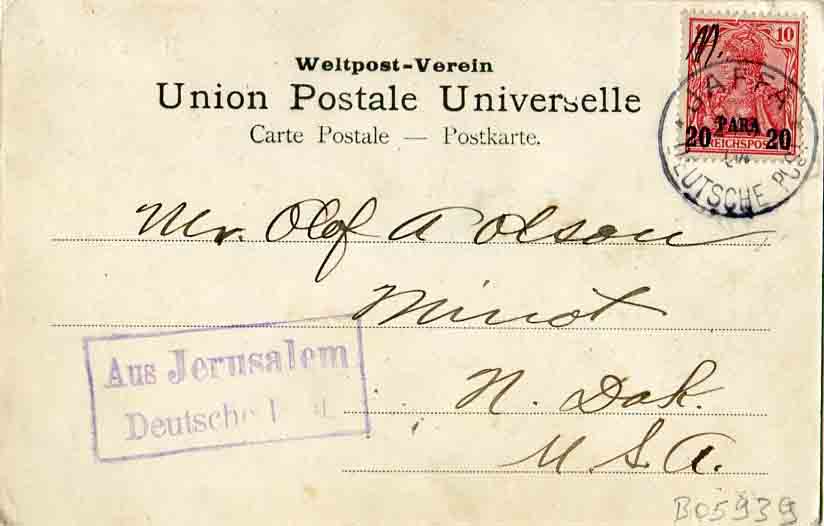 Weltpost-Verein
Union Postale Universelle
Carte Postale — Postkarte.
10
PARA
20 20
REICHSPOST
JAFFA
DEUTSCHE POST
Mr. Olof A Olson
Minot
N. Dak.
U. S. A.
Aus Jerusalem
Deutsche
B05939